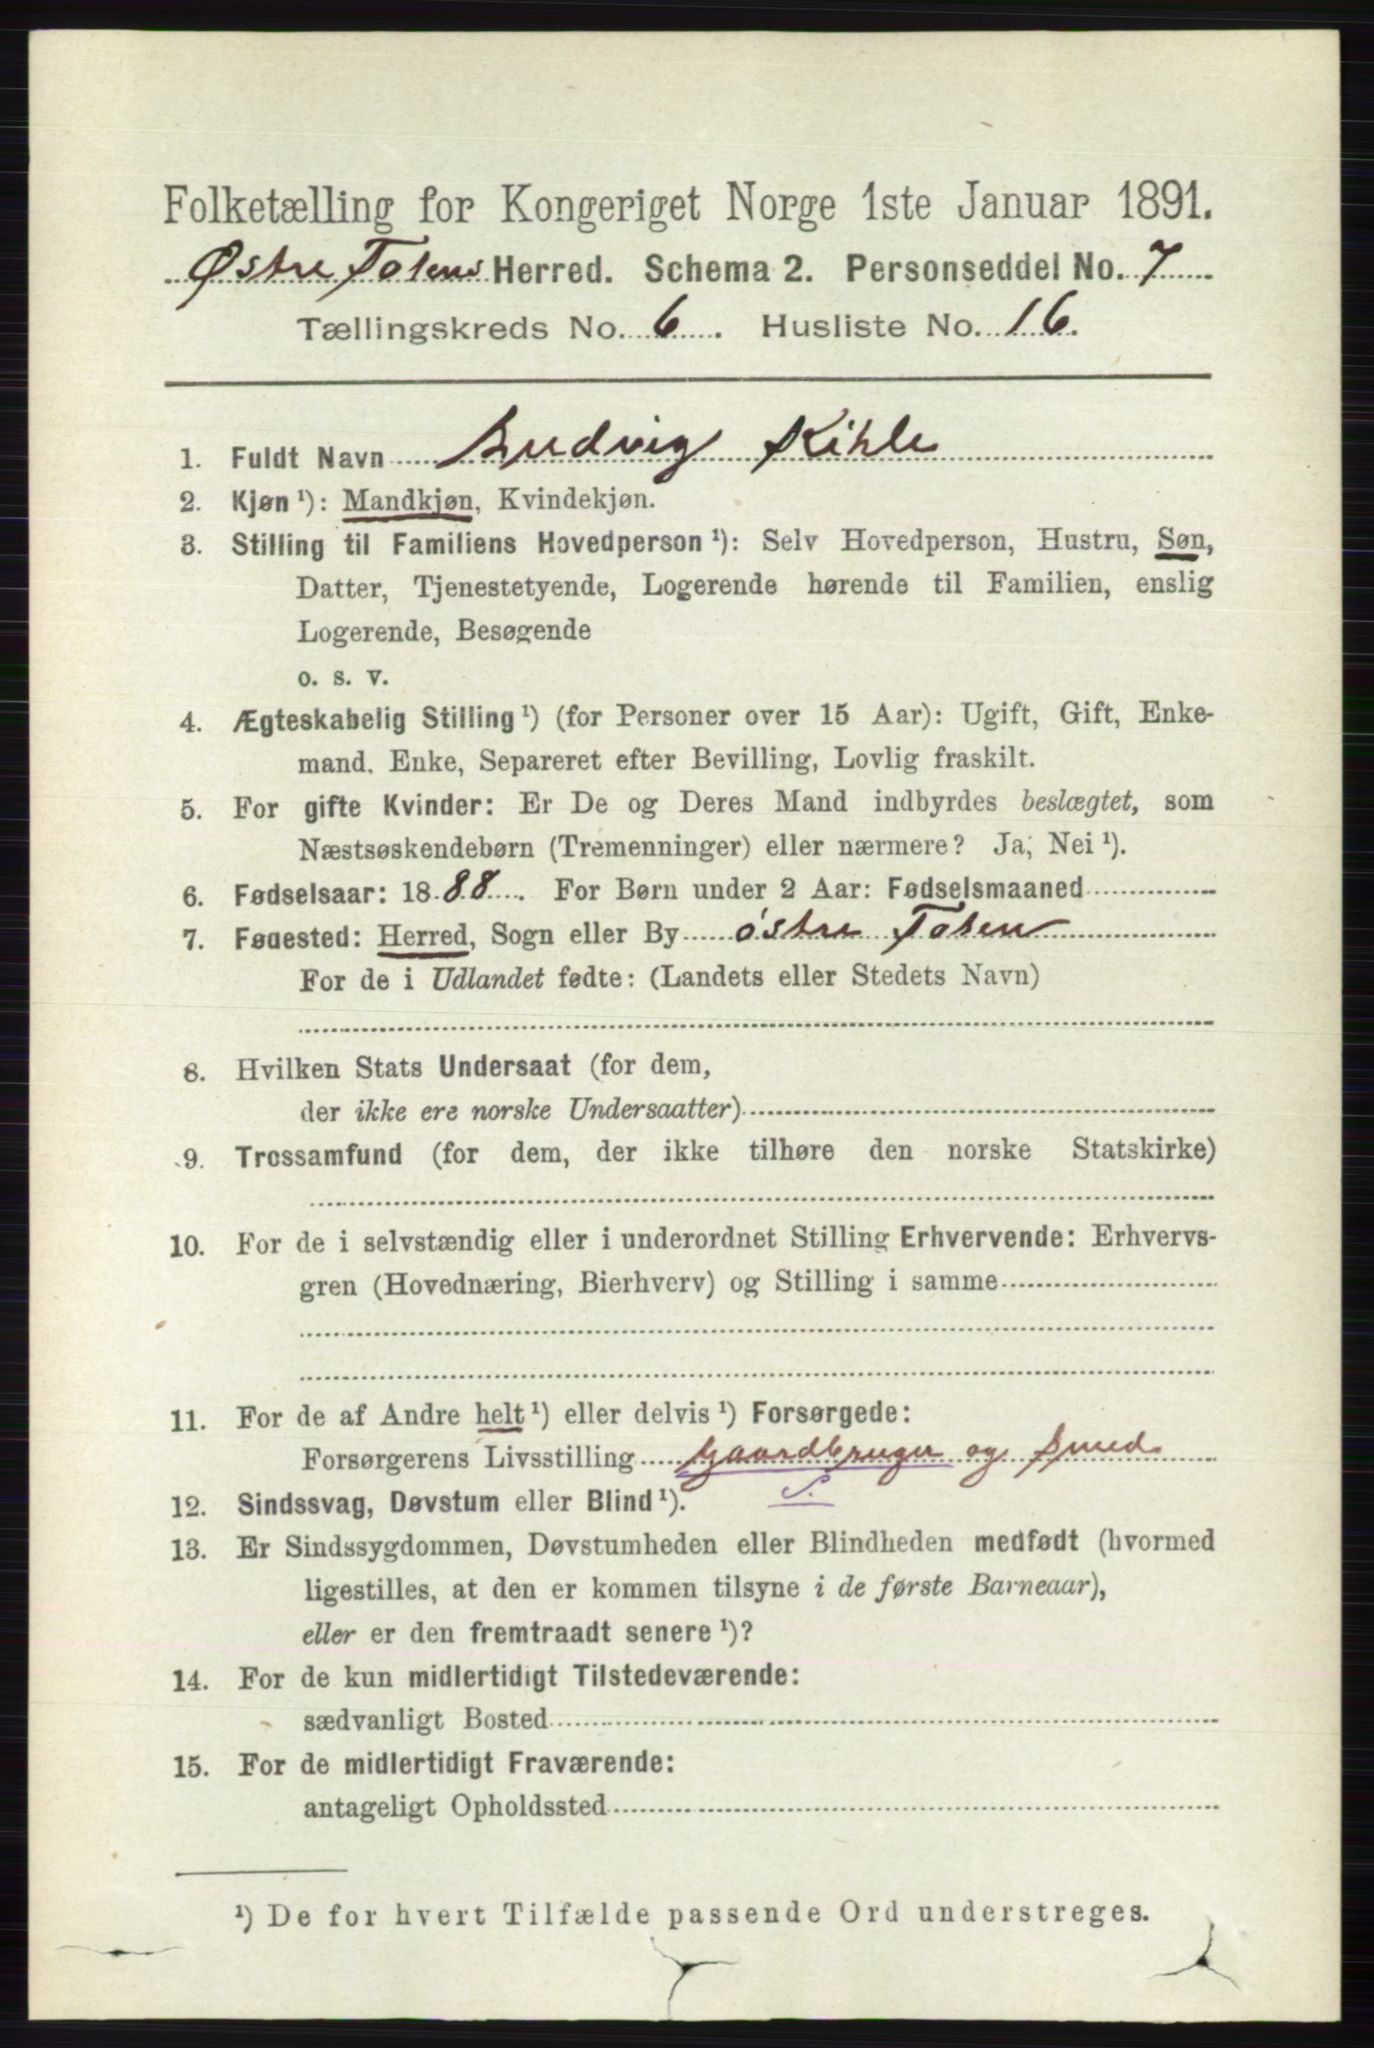 Folketælling for Kongeriget Norge 1ste Januar 1891.
Østre Totens Herred. Schema 2. Personseddel No. 7
Tællingskreds No. 6. Husliste No. 16.
1. Fuldt Navn Ludvig Kihle
2. Kjøn ¹): Mandkjøn, Kvindekjøn.
3. Stilling til Familiens Hovedperson ¹): Selv Hovedperson, Hustru, Søn,
Datter, Tjenestetyende, Logerende hørende til Familien, enslig
Logerende, Besøgende
o. s. v.
4. Ægteskabelig Stilling ¹) (for Personer over 15 Aar): Ugift, Gift, Enke-
mand, Enke, Separeret efter Bevilling, Lovlig fraskilt.
5. For gifte Kvinder: Er De og Deres Mand indbyrdes beslægtet, som
Næstsøskendebørn (Tremenninger) eller nærmere? Ja, Nei ¹).
6. Fødselsaar: 1888. For Børn under 2 Aar: Fødselsmaaned
7. Fødested: Herred, Sogn eller By østre Toten
For de i Udlandet fødte: (Landets eller Stedets Navn)
8. Hvilken Stats Undersaat (for dem,
der ikke ere norske Undersaatter)
9. Trossamfund (for dem, der ikke tilhøre den norske Statskirke)
10. For de i selvstændig eller i underordnet Stilling Erhvervende: Erhvervs-
gren (Hovednæring, Bierhverv) og Stilling i samme
11. For de af Andre helt ¹) eller delvis ¹) Forsørgede:
Forsørgerens Livsstilling Gaardbruger og Smed
12. Sindssvag, Døvstum eller Blind ¹). S.
13. Er Sindssygdommen, Døvstumheden eller Blindheden medfødt (hvormed
ligestilles, at den er kommen tilsyne i de første Barneaar),
eller er den fremtraadt senere ¹)?
14. For de kun midlertidigt Tilstedeværende:
sædvanligt Bosted
15. For de midlertidigt Fraværende:
antageligt Opholdssted
¹) De for hvert Tilfælde passende Ord understreges.